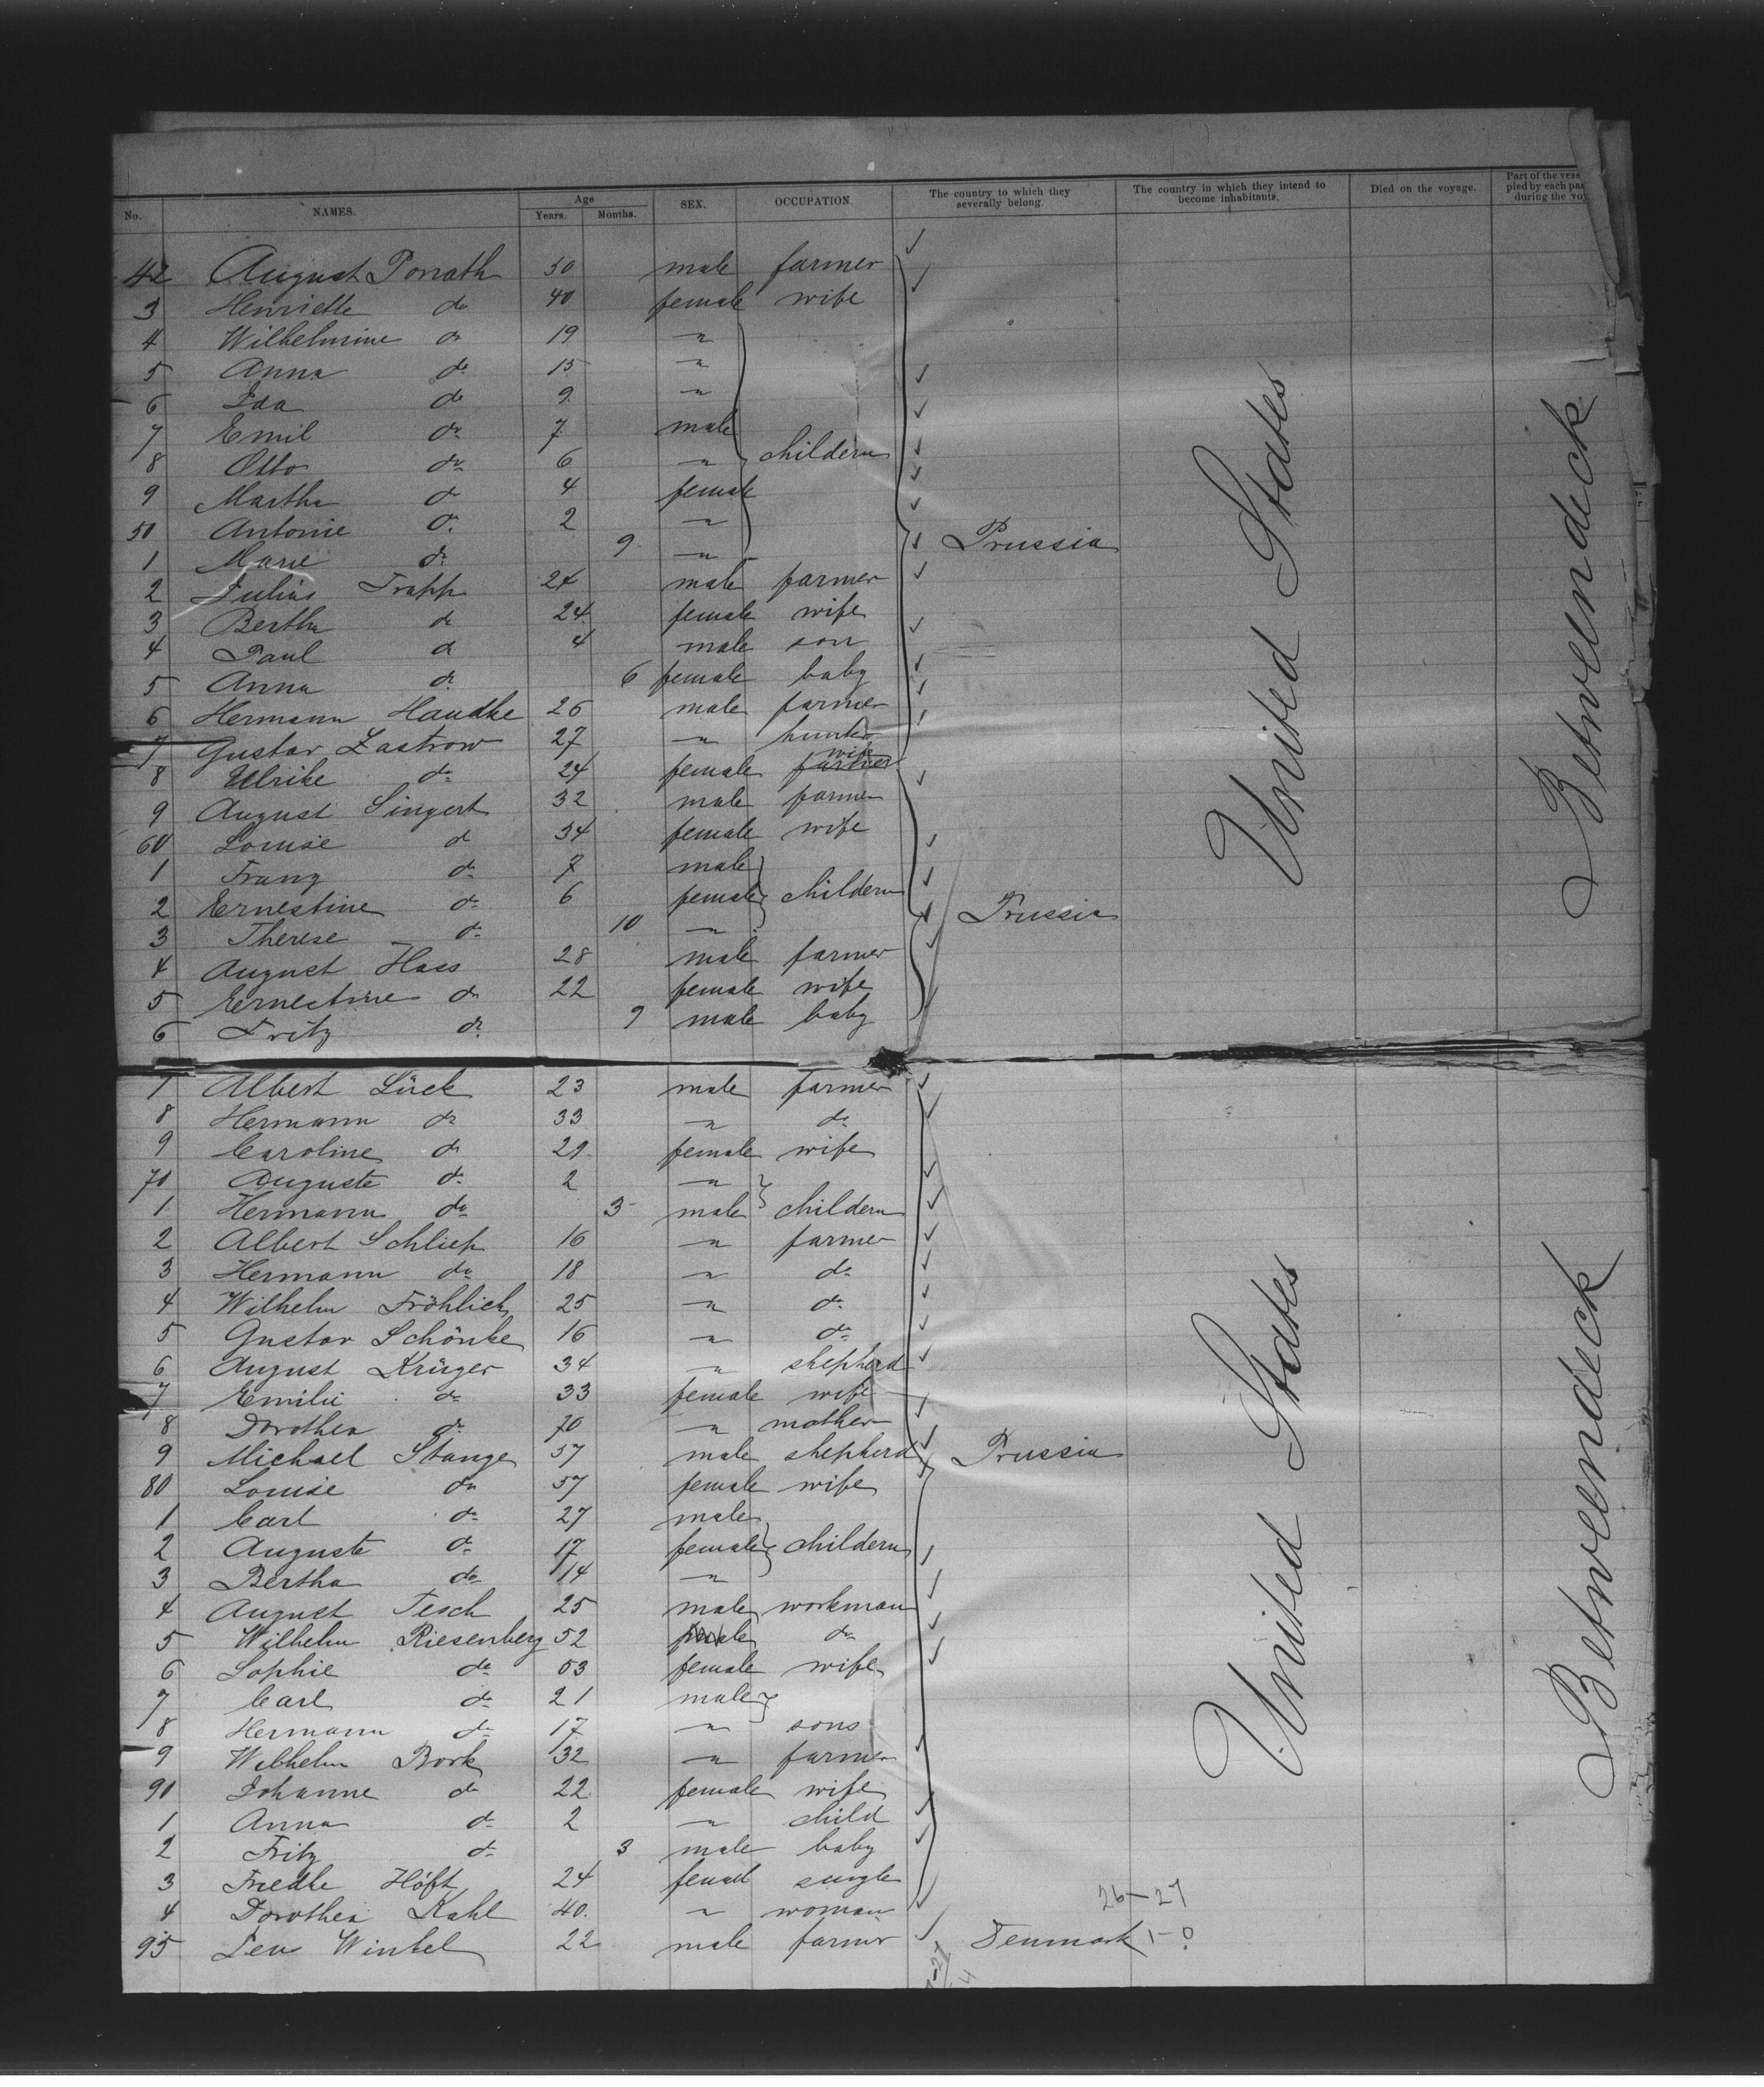 No. NAMES. Age Years. Months. SEX. OCCUPATION. The country to which they severally belong. The country in which they intend to become inhabitants. Died on the voyage. Part of the vess pied by each pas during the voy
42 August Porrath 50 male farmer
3 Henriette do 40 female wife
4 Wilhelmine do 19 "
5 Anna do 15 "
6 Ida do 9 "
7 Emil do 7 male
8 Otto do 6 " childern
9 Martha do 4 female
50 Antonie do 2 "
1 Marie do 9 " Prussia
2 Julius Trapp 24 male farmer
3 Bertha do 24 female wife
4 Paul do 4 male son
5 Anna do 6 female baby
6 Hermann Handke 26 male farmer
7 Gustav Zastrow 27 " hunter
8 Ulrike do 24 female farmer wife
9 August Singert 32 male farmer
60 Louise do 34 female wife
1 Franz do 7 male
2 Ernestine do 6 female childern
3 Therese do 10 " Prussia
4 August Haes 28 male farmer
5 Ernestine do 22 female wife
6 Fritz do 9 male baby
United States
Betweendeck
7 Albert Lück 23 male farmer
8 Hermann do 33 " do
9 Caroline do 29 female wife
70 Auguste do 2 "
1 Hermann do 3 male childern
2 Albert Schliep 16 " farmer
3 Hermann do 18 " do
4 Wilhelm Fröhlich 25 " do
5 Gustav Schönke 16 " do
6 August Krüger 34 " shepherd
7 Emilie do 33 female wife
8 Dorothea do 70 " mother
9 Michael Stange 57 male shepherd Prussia
80 Louise do 57 female wife
1 Carl do 27 male
2 Auguste do 17 female childern
3 Bertha do 14 "
4 August Tesch 25 male workman
5 Wilhelm Riesenberg 52 male do
6 Sophie do 53 female wife
7 Carl do 21 male
8 Hermann do 17 " sons
9 Wilhelm Bork 32 " farmer
90 Johanne do 22 female wife
1 Anna do 2 " child
2 Fritz do 3 male baby
3 Friedke Höft 24 femal single
4 Dorothea Kahl 40 " woman 26-27
95 Jens Winkel 22 male farmer Denmark 1-0
United States
Betweendeck